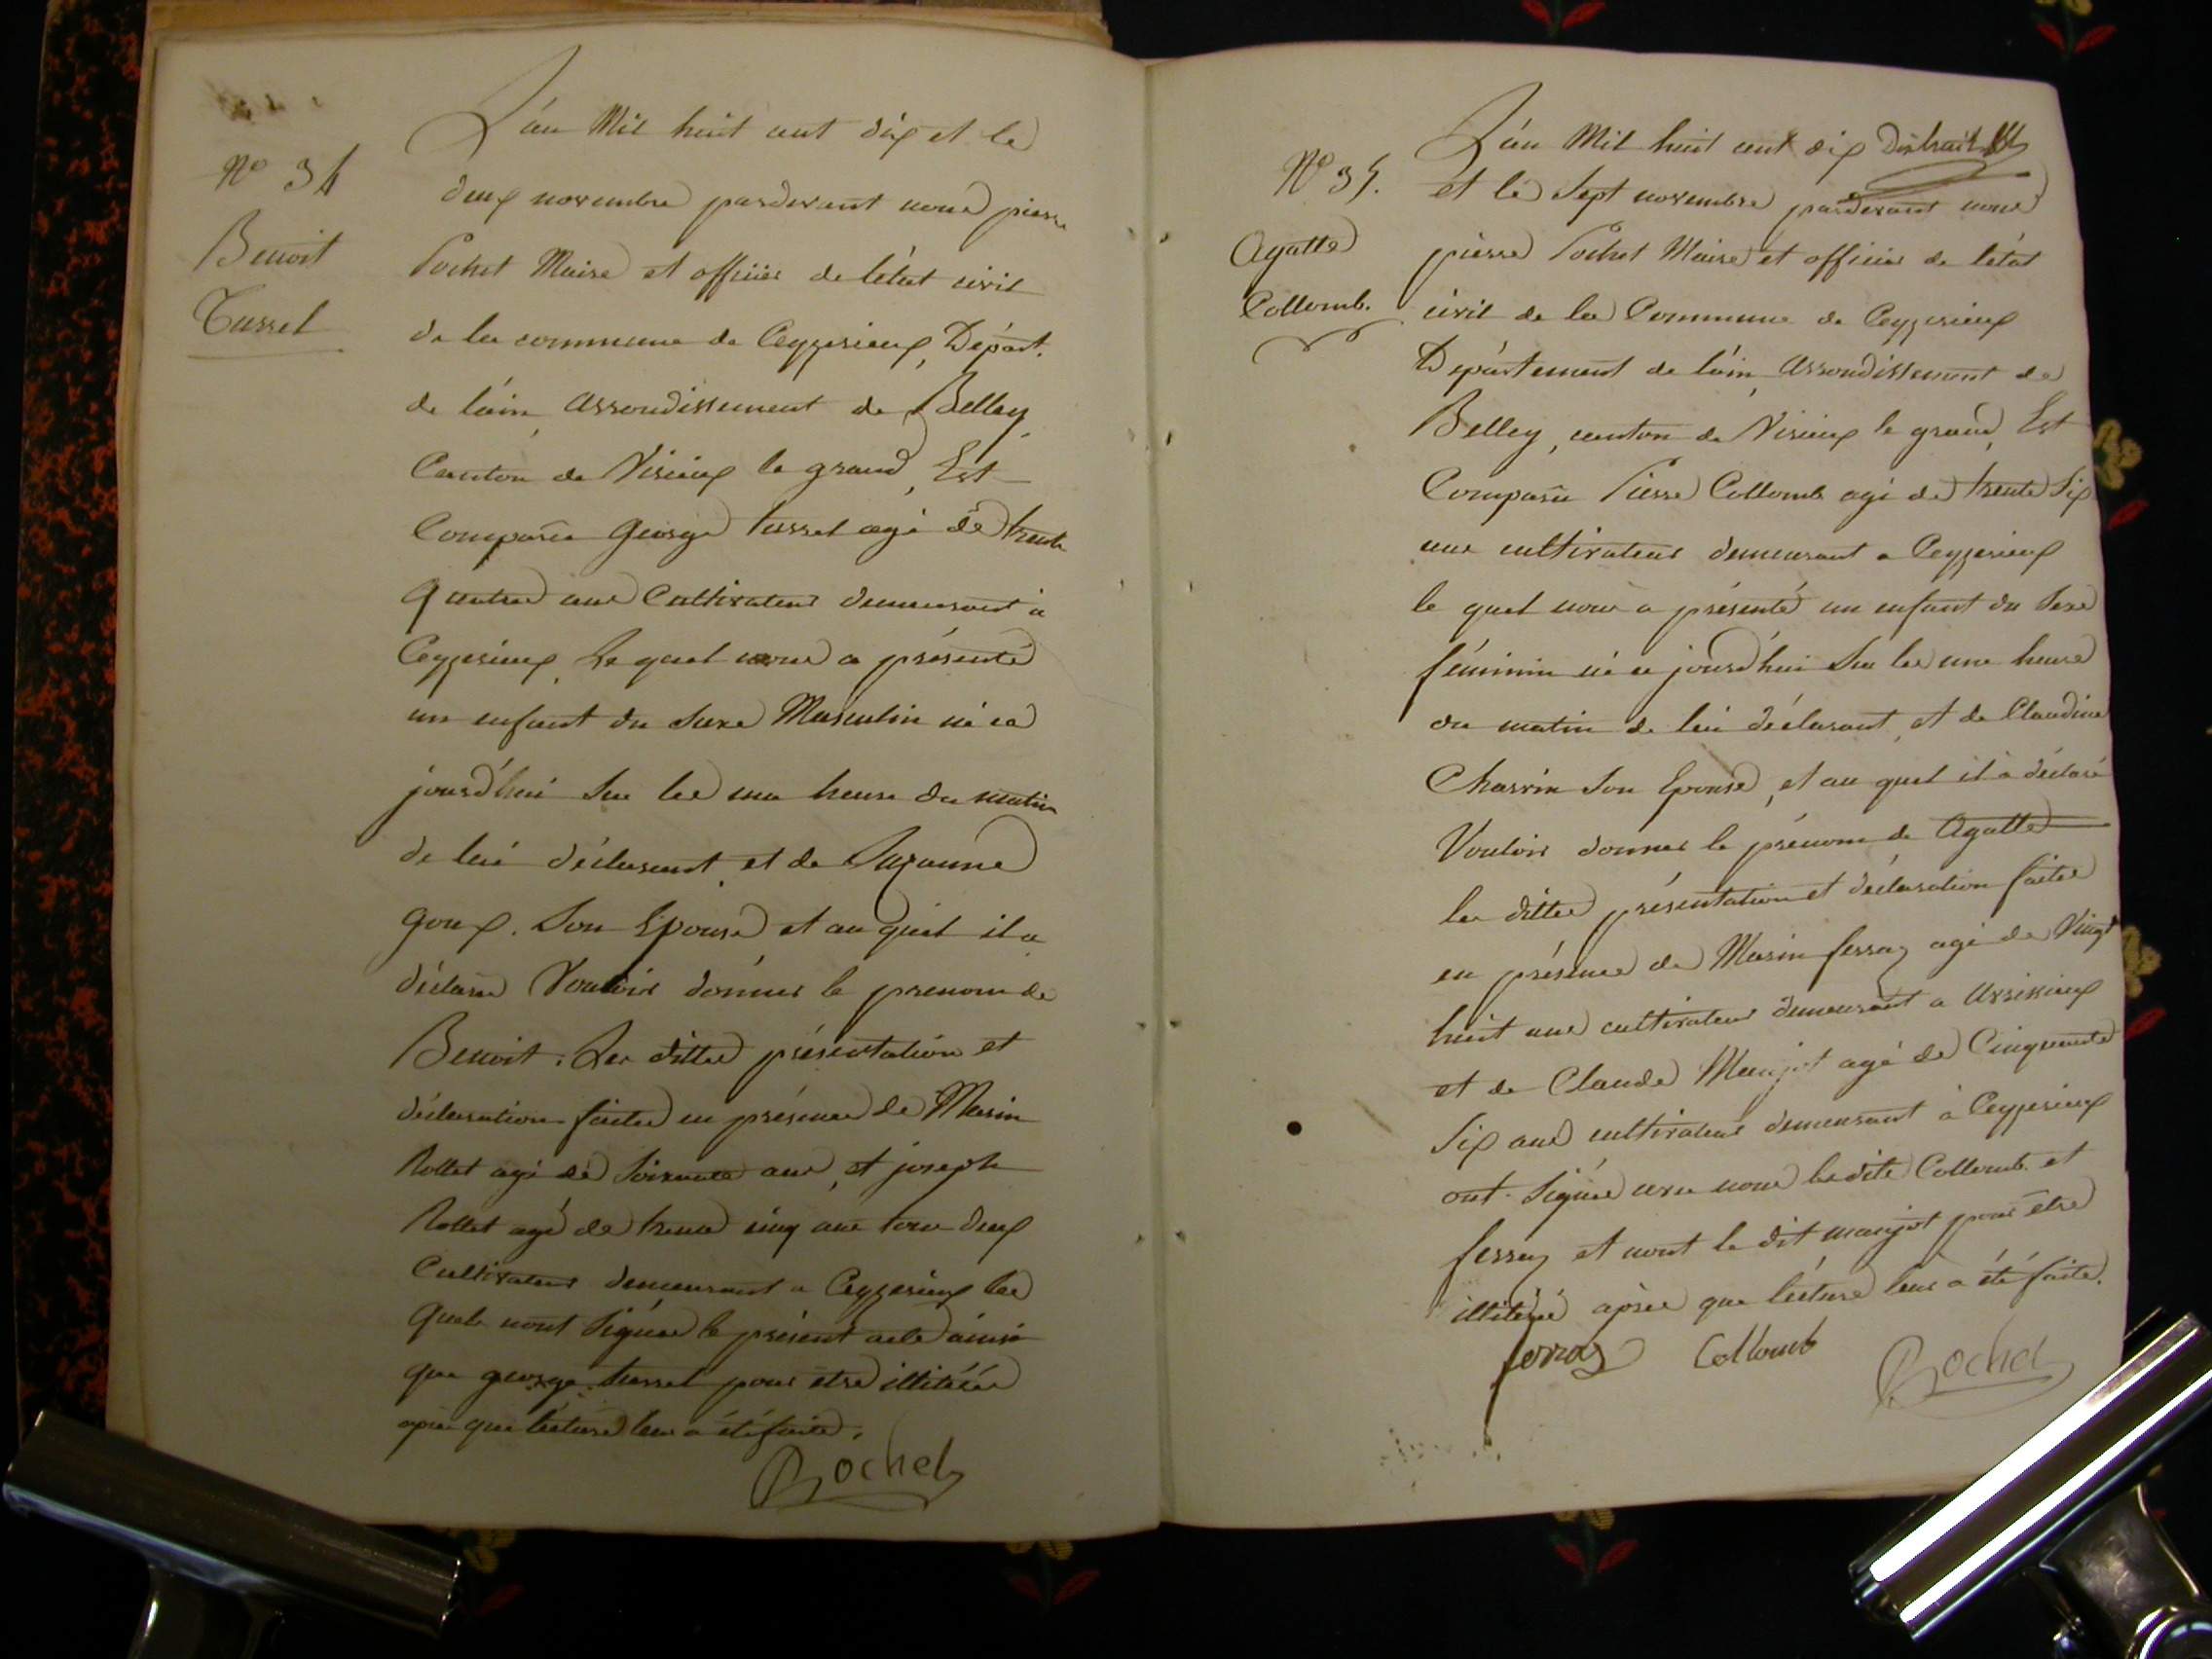 N° 34
Benoit
Tussel
L'an Mil huit cent dix et le
deux novembre pardevant nous pierre
Pochet Maire et officier de l'état civil
de la commune de Ceyzerieux, Départ.
de l'ain, arrondissement de Belley,
Canton de Virieux le grand, Est
Comparu George tussel agé de trente
quatre ans Cultivateur demeurant à
Ceyzerieux, Le quel nous a présenté
un enfant du sexe Masculin né ce
jourd'hui sur les une heure du matin
de lui déclarant, et de Suzanne
goux. Son Epouse et au quel il a
déclaré Vouloir donner le prenom de
Benoit. Les dittes présentation et
déclaration faites en présence de Marin
Rollet agé de soixante ans, et joseph
Rollet agé de trente cinq ans tous deux
Cultivateurs demeurant a Ceyzerieux les
quels n'ont signés le présent acte ainsi
que george tussel pour etre illitérés
après que lecture leur a été faite.
Pochet
N° 35.
Agatte
Collomb.
L'an Mil huit cent dix
et le sept novembre pardevant nous
pierre Pochet Maire et officier de l'état
civil de la Commune de Ceyzerieux
Département de l'ain, arrondissement de
Belley, canton de Virieux le grand, Est
Comparu Pierre Collomb agé de trente six
ans cultivateur demeurant a Ceyzerieux
le quel nous a présenté un enfant du sexe
féminin né ce jourd'hui sur les une heure
du matin de lui déclarant, et de Claudine
Charvin son Epouse, et au quel il a déclaré
Vouloir donner le prénom de Agatte
les dittes présentation et déclaration faites
en présence de Marin ferraz agé de Vingt
huit ans cultivateur demeurant a
et de Claude Manjot agé de Cinquante
six ans cultivateur demeurant à Ceyzerieux
ont signés avec nous lesdits Collomb. et
ferraz et nont le dit manjot pour etre
illitéré après que lecture leur a été faite.
ferraz Collomb Pochet